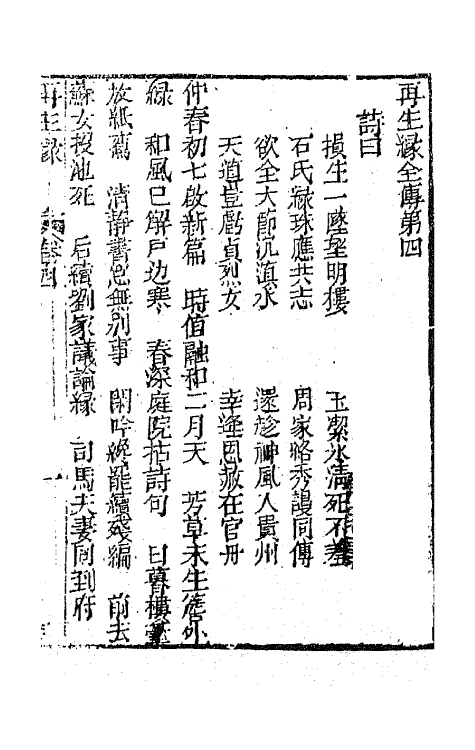 再生緣全傳第四
詩曰
損生一墜望明樓　玉潔氷清死不羞
石氏綠珠應共志　周家賂秀謾同傳
欲全大節沉滇水　還趁神風入貴州
天道豈虧貞烈女　幸逢恩赦在官舟
仲春初七啟新篇　時值融和二月天　芳草未生簷外
綠　和風巳解戸边寒　春深庭院拈詩句　日暮樓臺
放紙鳶　清静書窓無别事　閑吟纔罷續殘編　前去
蘇女投池死　后續劉家議論緣　司馬夫妻同到府
再生緣　卷四　一